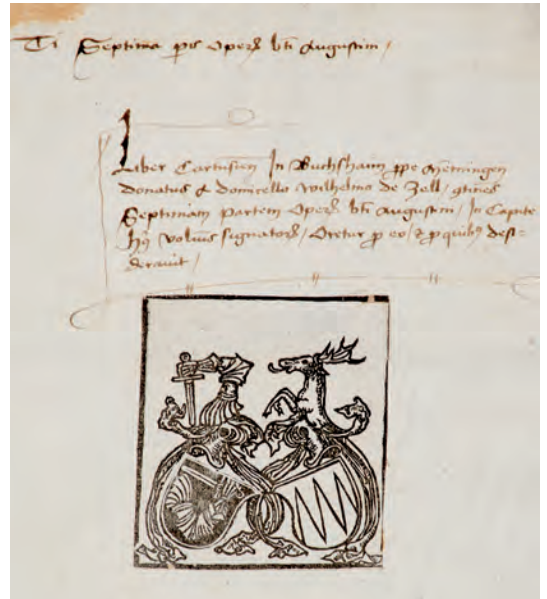 Ti Septima ps Operꝝ bti Augustini /
Liber Cartusien In Buchshaim ppe Memingen
donatus a domicello Wilhelmo de Zell / 9tines
Septimam Partem Operꝝ bti Augustini / In Capite
hꝰ volumis signatorꝝ / Oretur p eo / et p quibꝰ desi=
derauit /